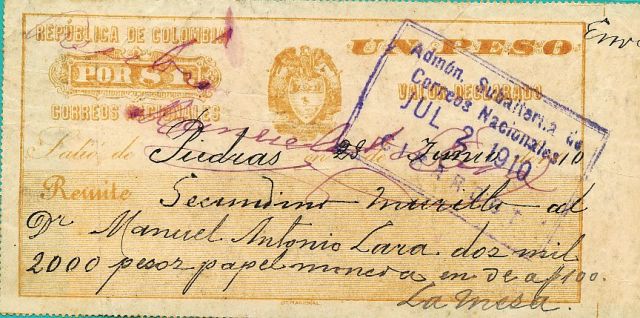 REPÚBLICA DE COLOMBIA
UN PESO
Env
POR $ 1
VALOR DECLARADO
CORREOS NACIONALES
Admón. Subalterna de
Correos Nacionales
JUL 2 1910
GIRARDOT
Salió de Piedras en 28 de Junio de 1910
Remite Secundino Murillo al
Dr Manuel Antonio Lara dos mil
2000 pesos papel moneda en de a $100.
La Mesa.
LIT. NACIONAL